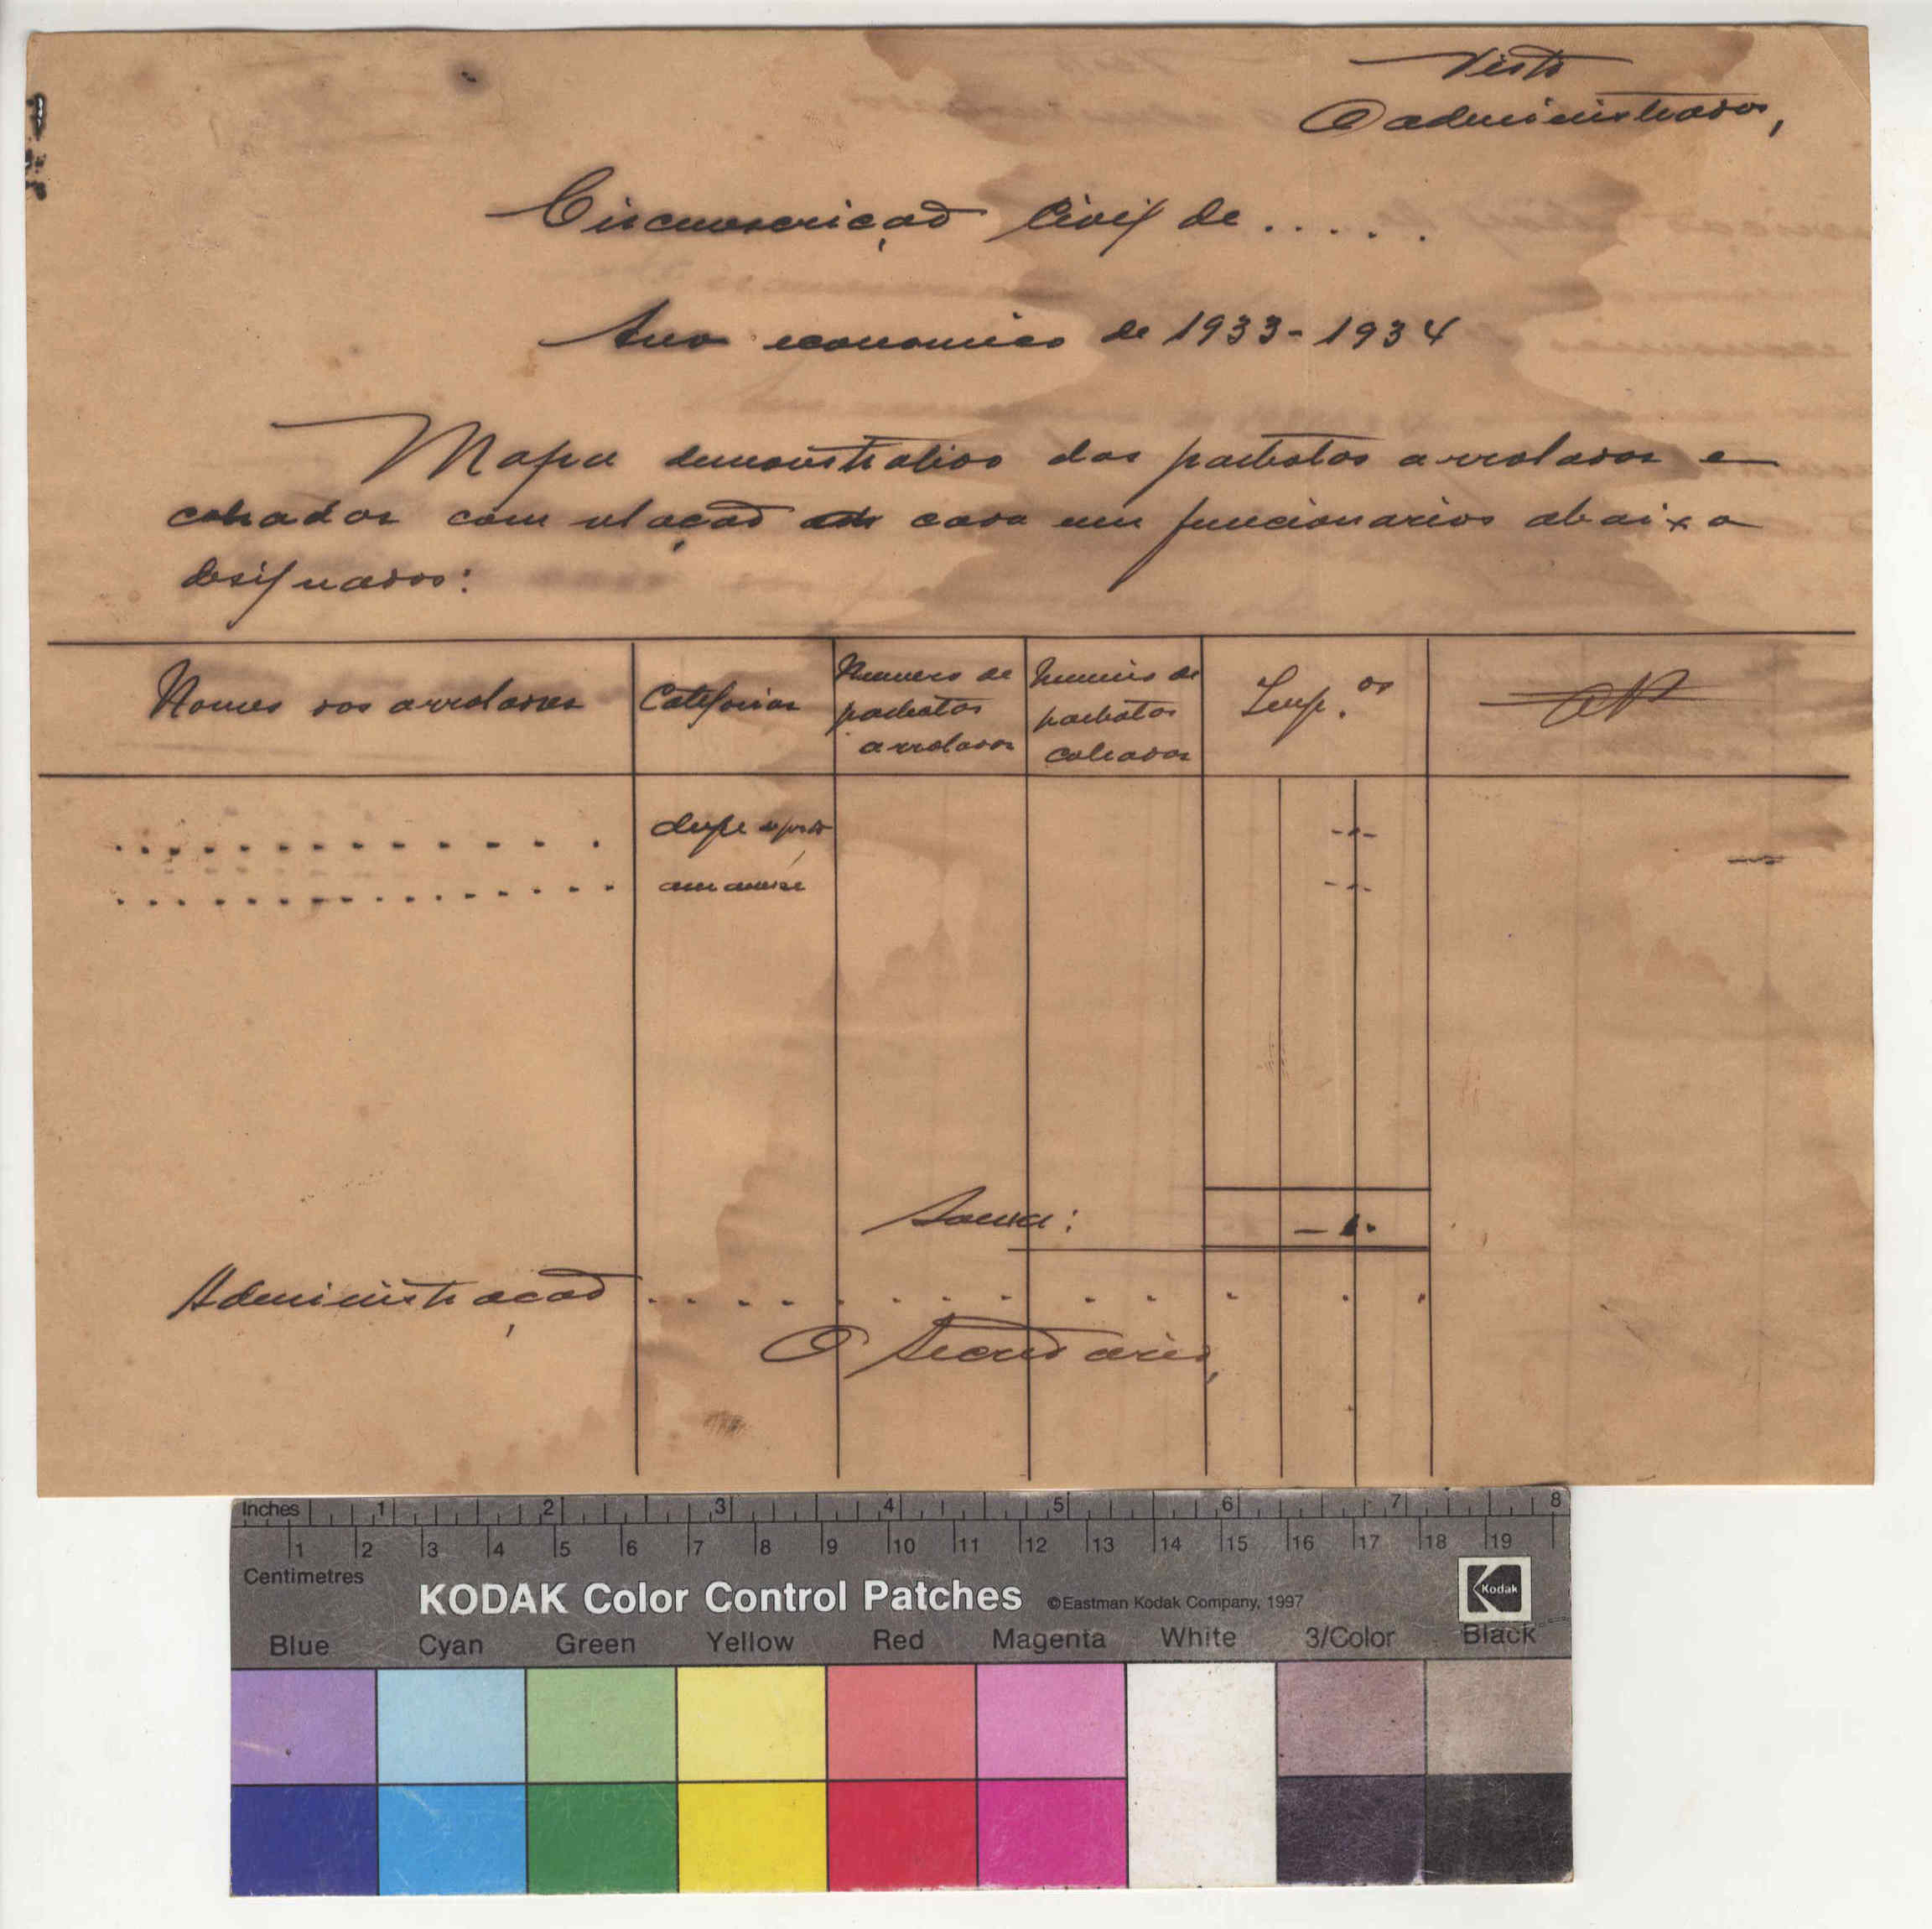 Visto
O administrador,
Circunscrição Civil de . . . . .
Ano economico de 1933-1934
Mapa demonstrativo das palhotas arroladas e
cobradas com relação cada um funcionarios abaixo
designados:
Nomes dos arroladores
Categorias
Numero de
palhotas
arroladas
Numero de
palhotas
cobradas
Imp.os
chefe de posto
amanuense
Soma:
Administração . . . . . . . . . . . . .
O Secretario,
Inches 1 2 3 4 5 6 7 8
1 2 3 4 5 6 7 8 9 10 11 12 13 14 15 16 17 18 19
Centimetres
KODAK Color Control Patches ©Eastman Kodak Company, 1997 Kodak
Blue Cyan Green Yellow Red Magenta White 3/Color Black